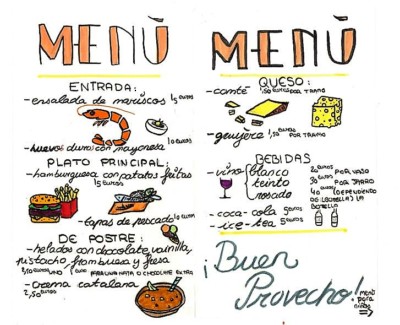 MENÙ
ENTRADA:
-ensalada de mariscos 15 euros
-huevos duros con mayonesa 10 euros
PLATO PRINCIPAL:
-hamburguesa con patatas fritas
15 euros
-tapas de pescado 10 euros
DE POSTRE:
-helados con chocolate, vainilla,
pistacho, frambuesa y fresa
3,10 euros UNO 1 euro PARA UNA NATA O CHOCOLATE EXTRA
-crema catalana
2,50 euros
MENÙ
QUESO:
-comté 1,50 euros POR TRAMO
-gruijère 1,50 euros POR TRAMO
BEBIDAS
-vino blanco 20 euros POR VASO
teinto 30 euros POR JARRO
rosado 40 (DEPENDIENDO
DE LA BOTELLA) LA
BOTELLA
-coca-cola 5 euros
-ice-tea 5 euros
¡Buen
Provecho!
menú
para
niños